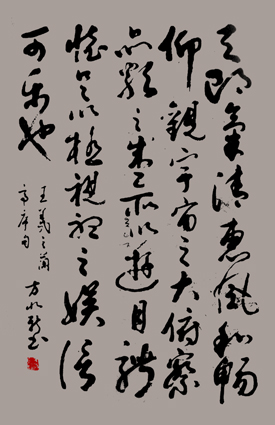 天朗氣清惠風和暢
仰觀宇宙之大俯察
品類之盛所以遊目騁
懷足以極視聽之娛信
可樂也
王羲之蘭
亭序句